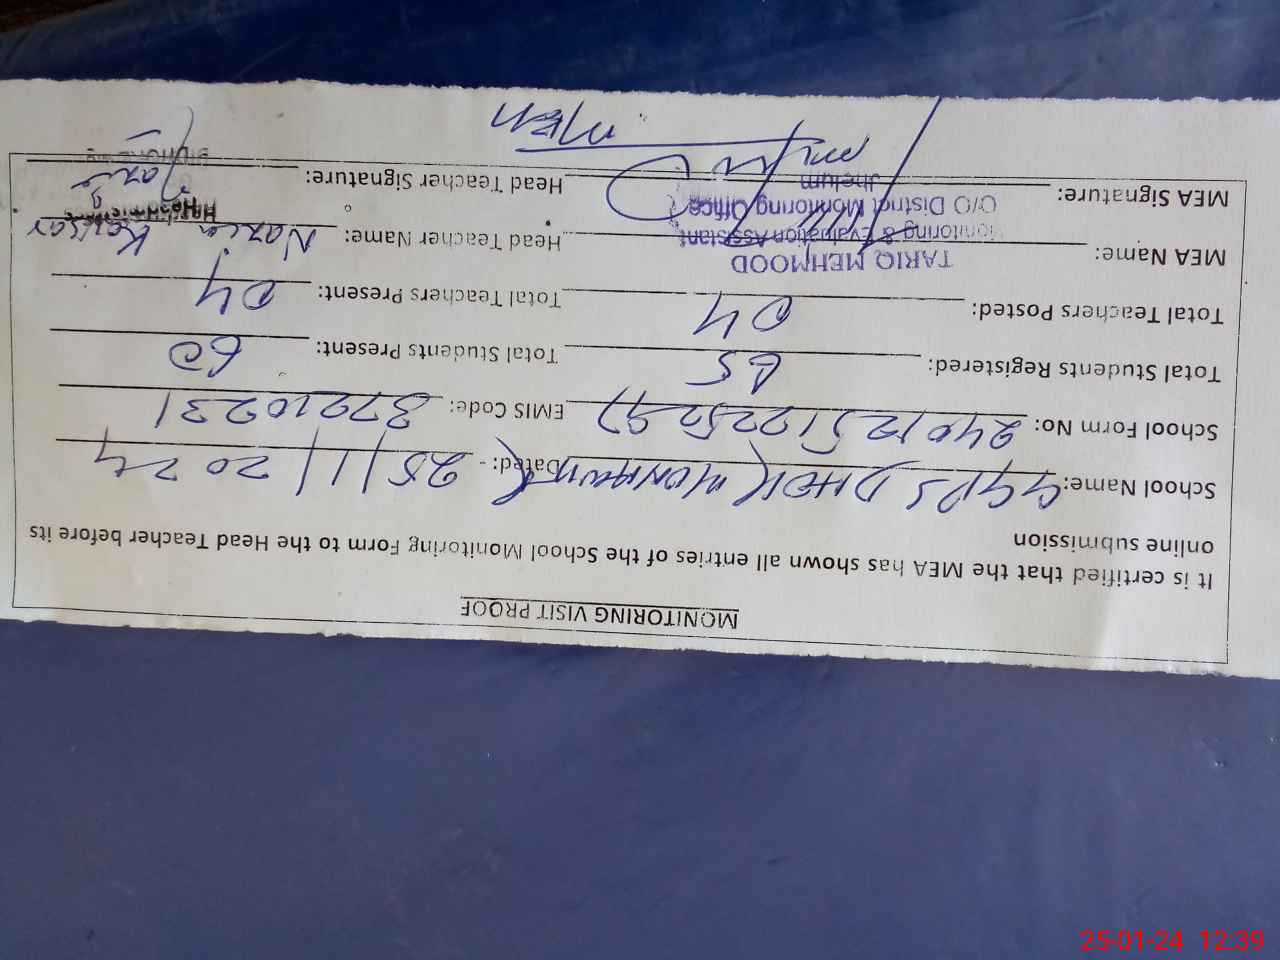 MONITORING VISIT PROOF
It is certified that the MEA has shown all entries of the School Monitoring Form to the Head Teacher before its
online submission
School Name: GGPS DHOK Dated:- 25/1/2024
School Form No: 240125122529 EMIS Code: 37210231
Total Students Registered: 65 Total Students Present: 60
Total Teachers Posted: 04 Total Teachers Present: 04
MEA Name: TARIQ MEHMOOD Head Teacher Name: Nazia Kausar
Monitoring & Evaluation Assistant
O/O District Monitoring Office
Jhelum
MEA Signature: Head Teacher Signature: Nazia
MEA
25-01-24 12:39